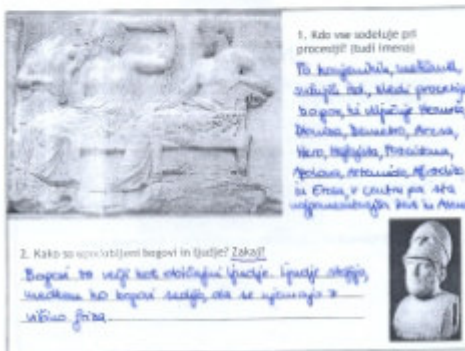 1. Kdo vse sodeluje pri
procesiji? (tudi imena)
To konjeniki, meščani,
sledi procesija
bogov, ki vključuje Hermesa,
Dioniza, Demetro, Aresa,
Hero, Hefajsta, Pozejdona,
Apolona, Artemido, Afrodito
in Erosa, v centru pa sta
Zevs in Atena
2. Kako so upodobljeni bogovi in ljudje? Zakaj?
Bogovi so večji kot običajni ljudje. Ljudje stojijo,
medtem ko bogovi sedijo, da se ujemajo z
višino friza.